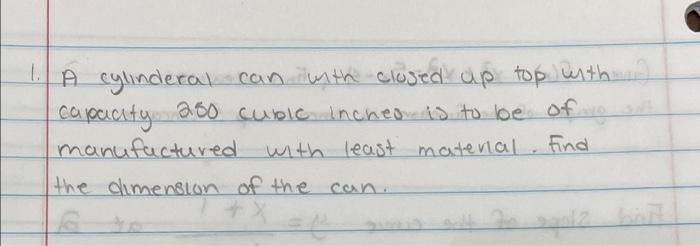 1. A cylinderal can with closed up top with
capacity 250 cubic inches is to be of
manufactured with least material. Find
the dimension of the can.